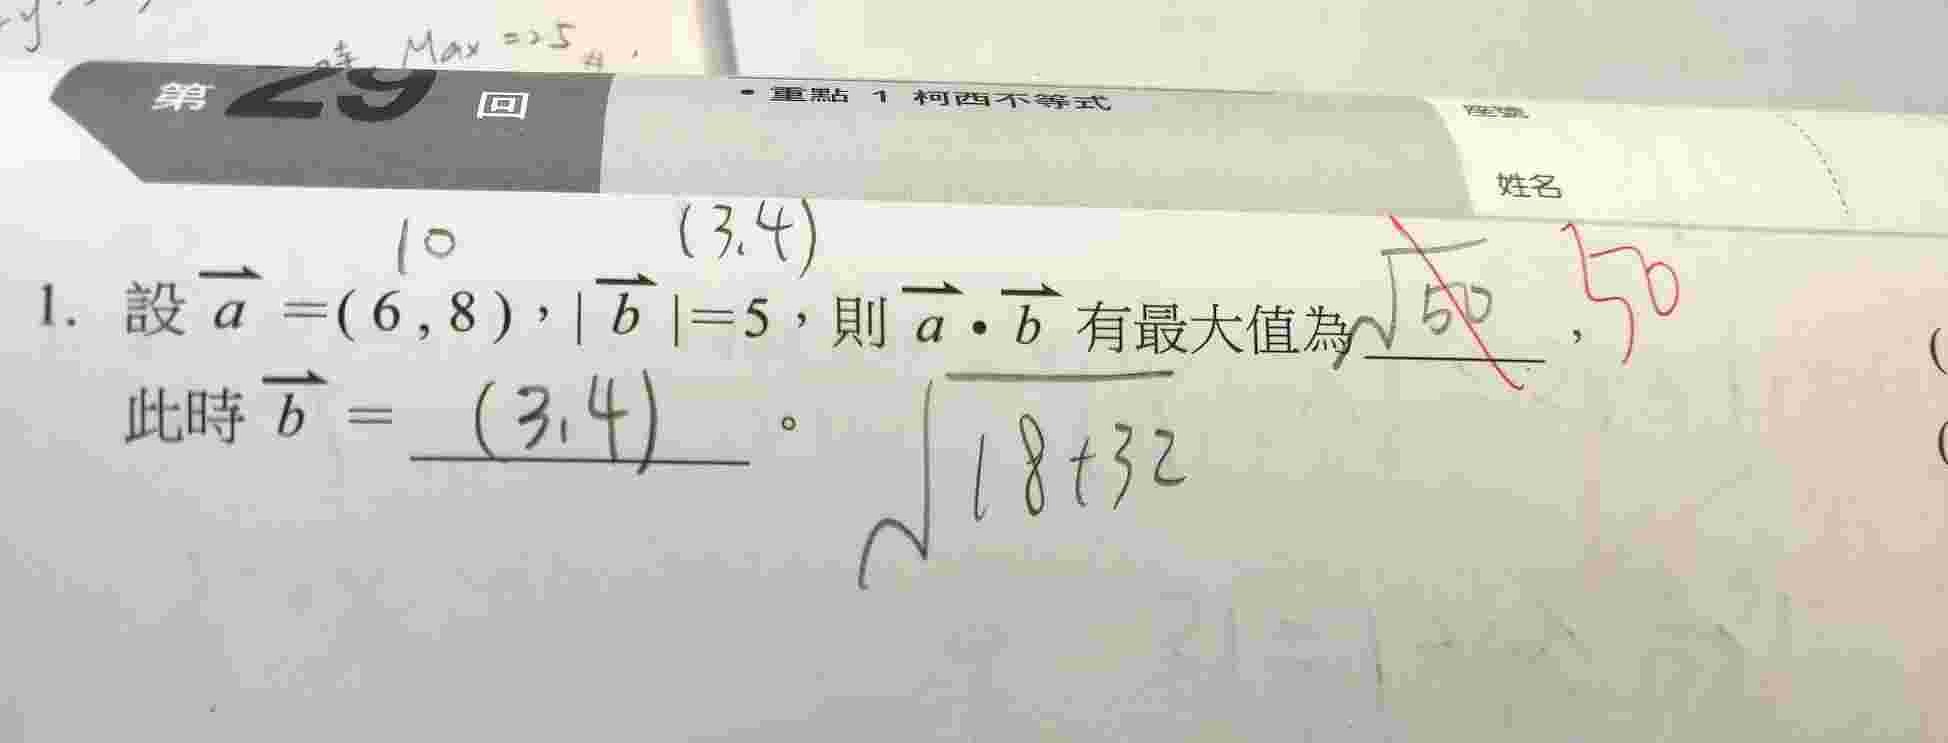 Max = 25
第 29 回
• 重點 1 柯西不等式
座號
姓名
10 (3.4)
1. 設 a =(6,8),| b |=5,則 a • b 有最大值為 √50 , 50
此時 b = (3,4) 。
√18+32